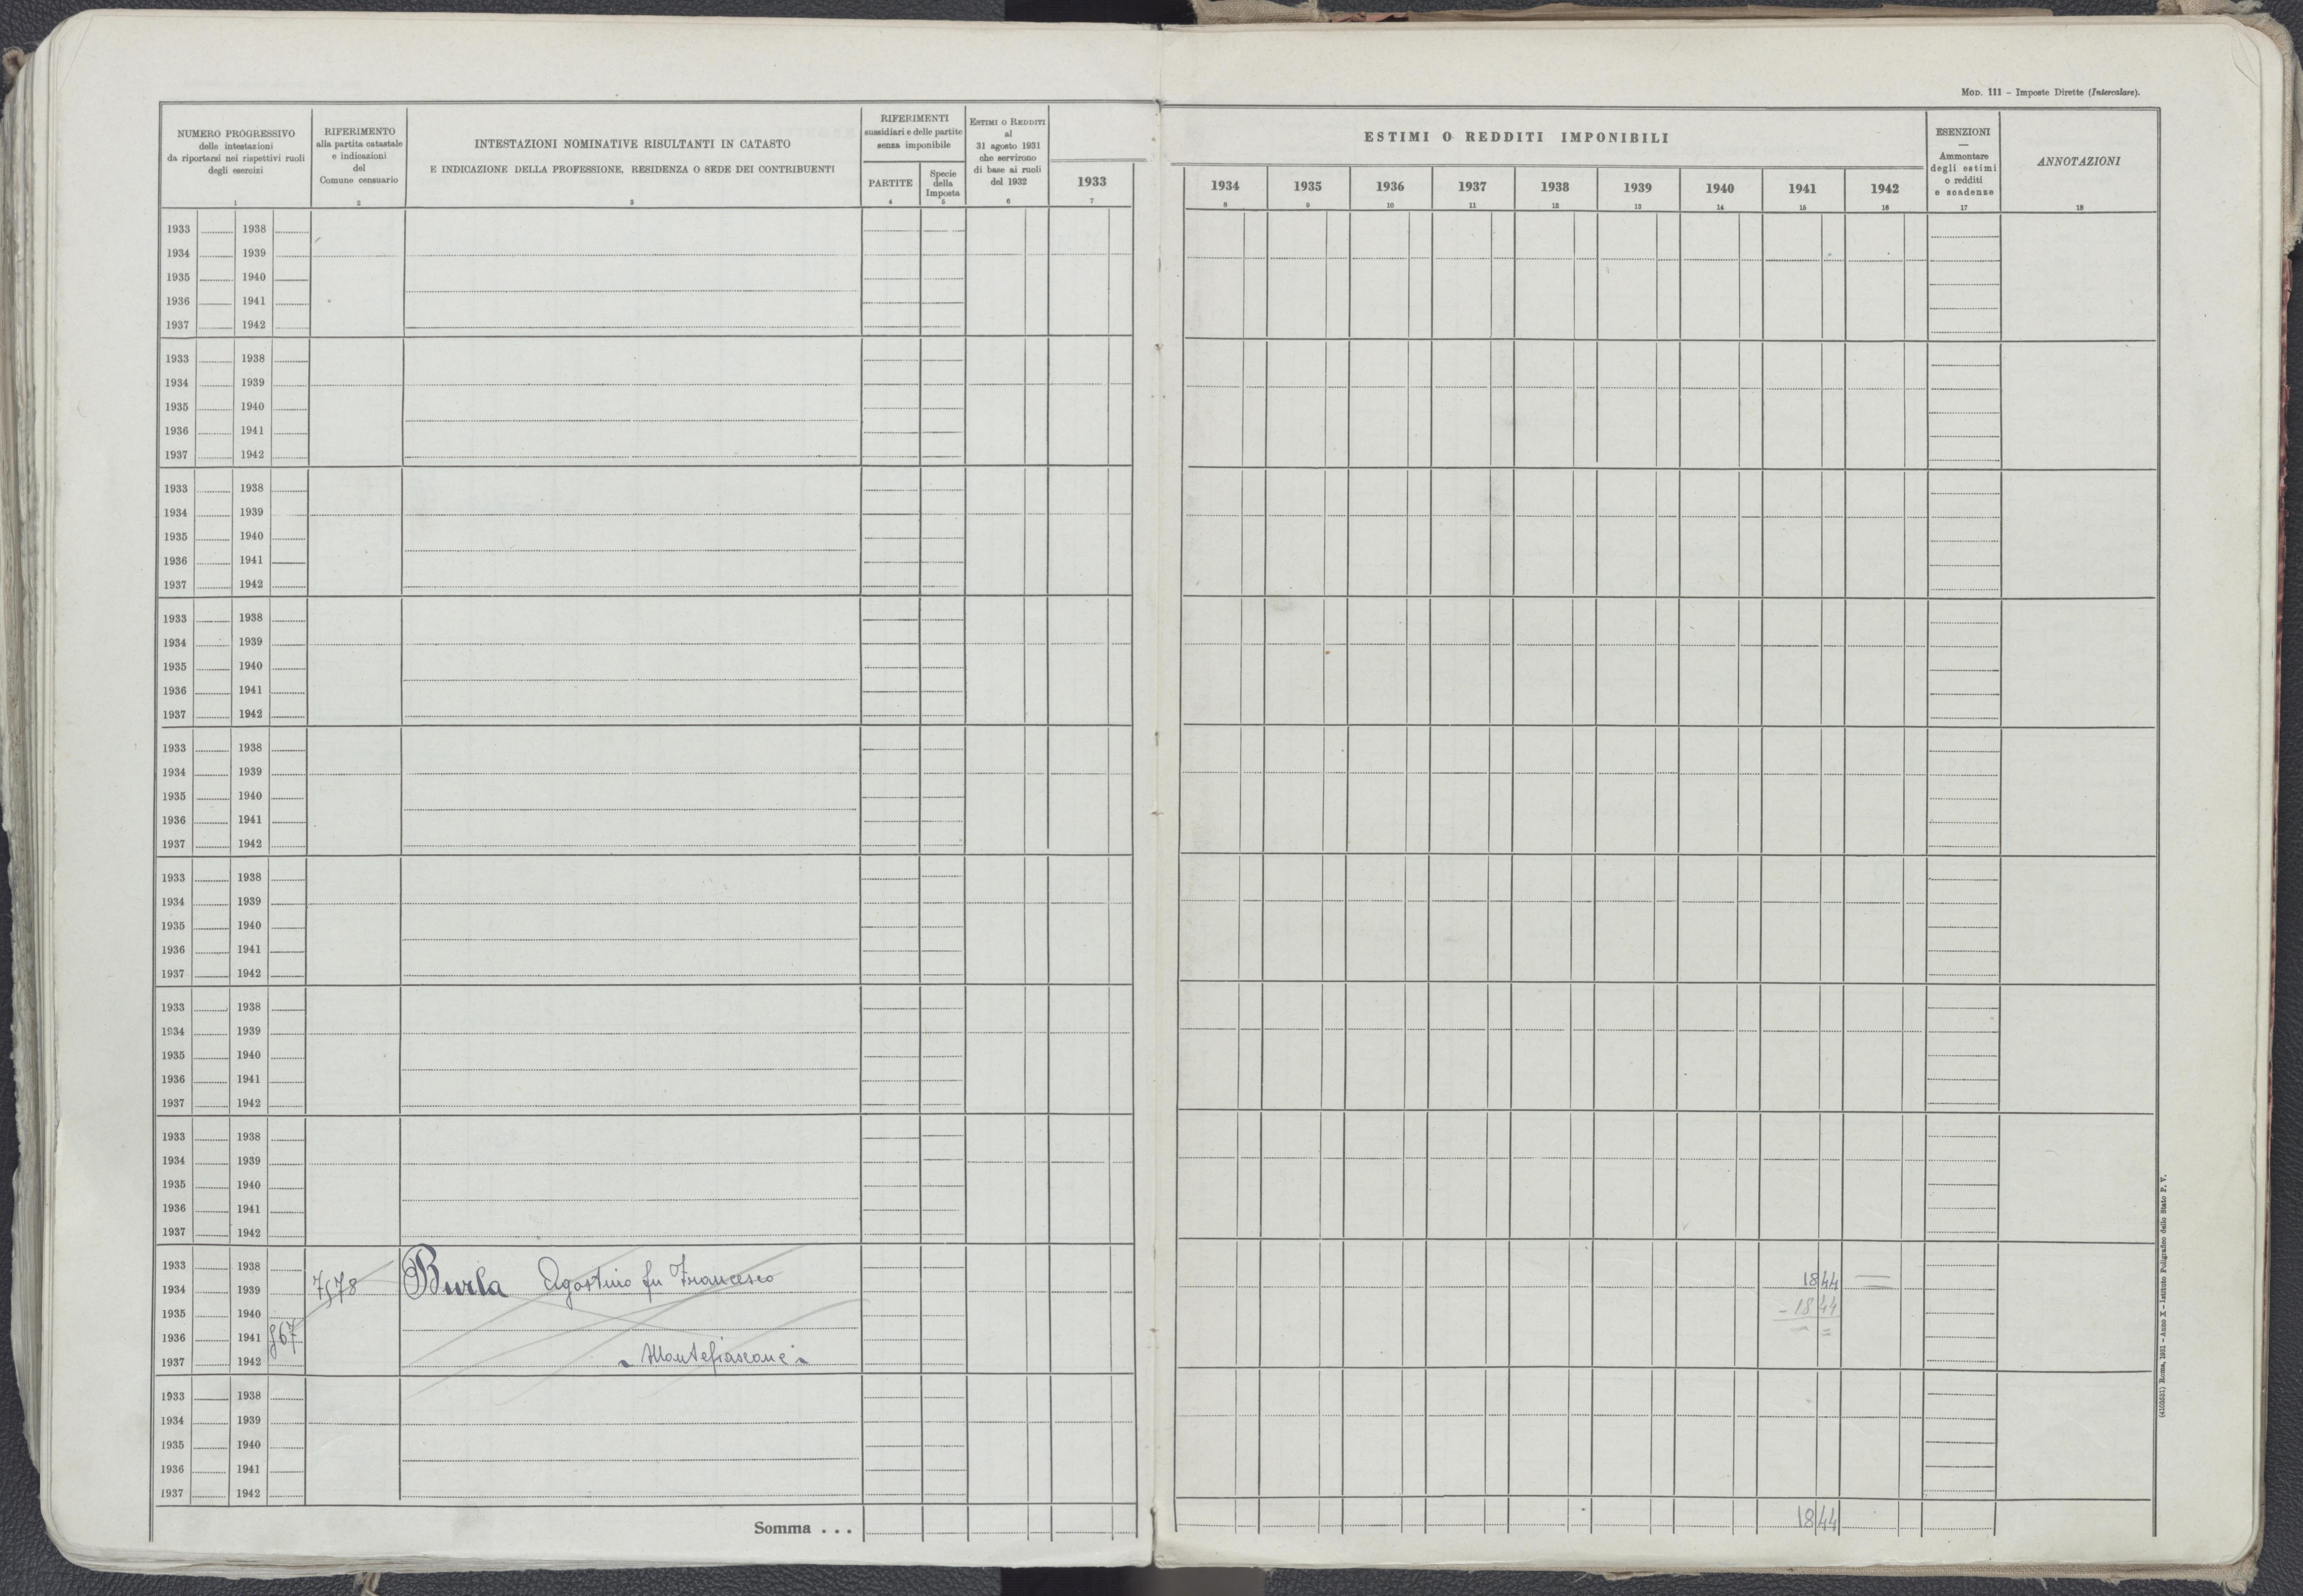 MOD. 111 – Imposte Dirette (Intercalare).
NUMERO PROGRESSIVO
delle intestazioni
da riportarsi nei rispettivi ruoli
degli esercizi
1
RIFERIMENTO
alla partita catastale
e indicazioni
del
Comune censuario
2
INTESTAZIONI NOMINATIVE RISULTANTI IN CATASTO
E INDICAZIONE DELLA PROFESSIONE, RESIDENZA O SEDE DEI CONTRIBUENTI
3
RIFERIMENTI
sussidiari e delle partite
senza imponibile
PARTITE
4
Specie
della
Imposta
5
ESTIMI O REDDITI
al
31 agosto 1931
che servirono
di base ai ruoli
del 1932
6
1933
7
ESTIMI O REDDITI IMPONIBILI
1934 1935 1936 1937 1938 1939 1940 1941 1942
8 9 10 11 12 13 14 15 16
ESENZIONI
—
Ammontare
degli estimi
o redditi
e scadenze
17
ANNOTAZIONI
18
1933 1938
1934 1939
1935 1940
1936 1941
1937 1942
1933 1938
1934 1939
1935 1940
1936 1941
1937 1942
1933 1938
1934 1939
1935 1940
1936 1941
1937 1942
1933 1938
1934 1939
1935 1940
1936 1941
1937 1942
1933 1938
1934 1939
1935 1940
1936 1941
1937 1942
1933 1938
1934 1939
1935 1940
1936 1941
1937 1942
1933 1938
1934 1939
1935 1940
1936 1941
1937 1942
1933 1938
1934 1939
1935 1940
1936 1941
1937 1942
1933 1938
1934 1939 Burla Agostino fu Francesco 18 44
1935 1940 – 18 44
1936 1941 – =
1937 1942 Montefiascone
1933 1938
1934 1939
1935 1940
1936 1941
1937 1942
Somma . . . 18 44
(4103531) Roma, 1931 – Anno X – Istituto Poligrafico dello Stato P. V.